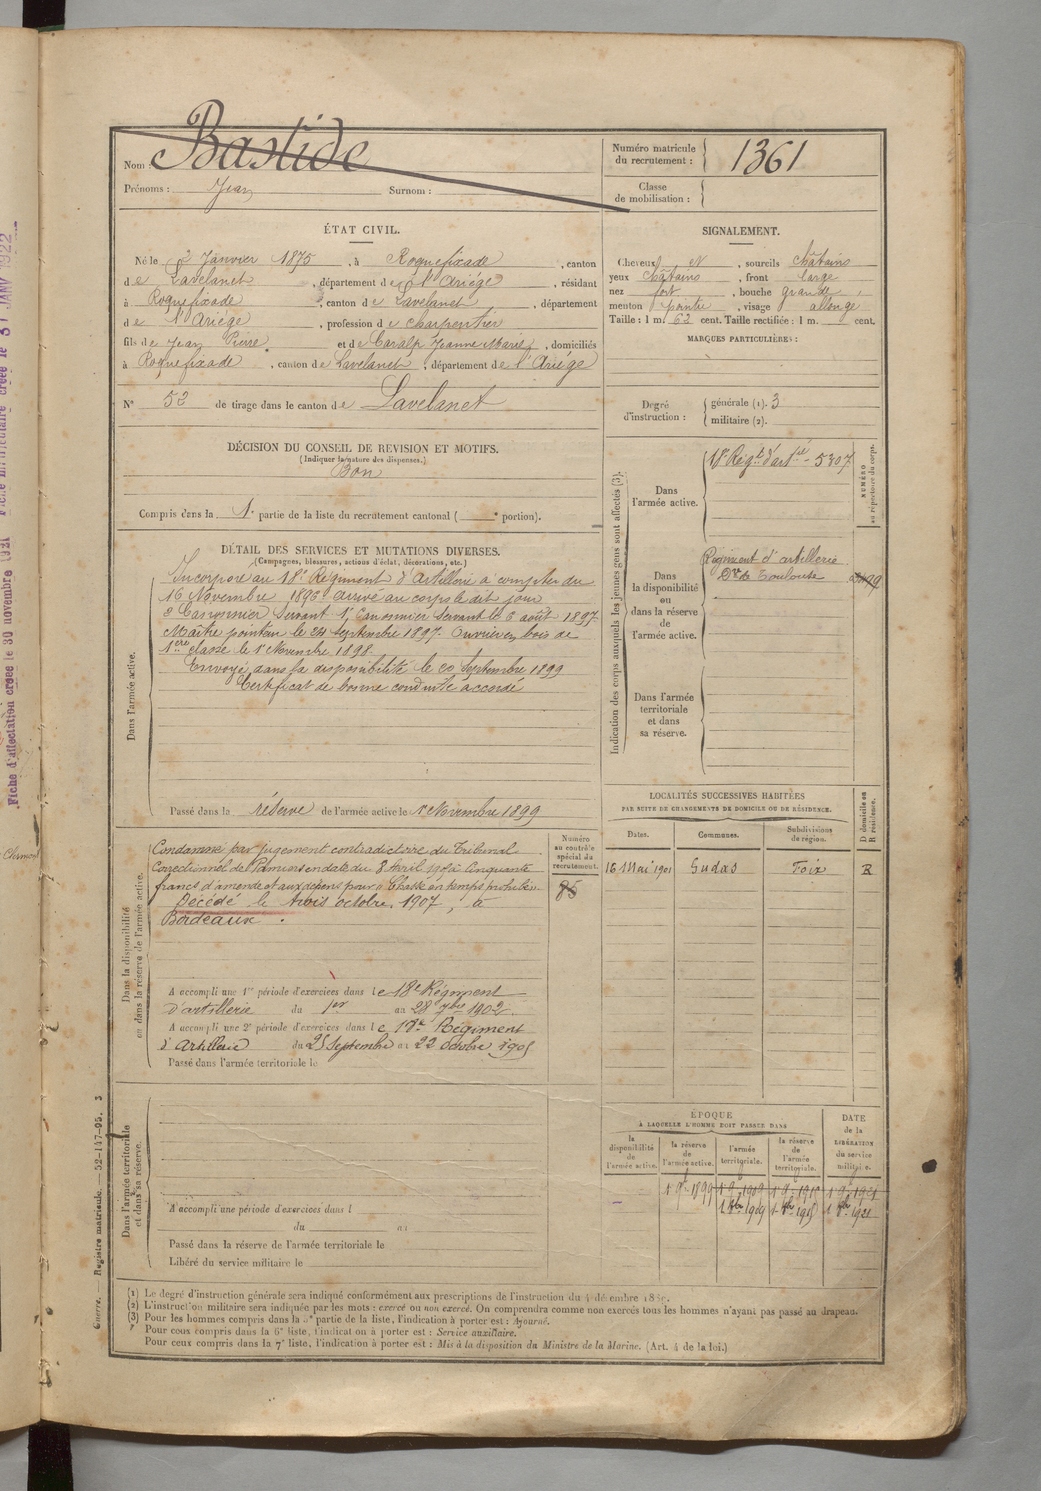 Nom : Bastide
Prénoms : Jean Surnom :
Numéro matricule
du recrutement : 1361
Classe
de mobilisation :
ÉTAT CIVIL.
Né le 2 Janvier 1875, à Roquefixade, canton
de Lavelanet, département de l'Ariége, résidant
à Roquefixade, canton de Lavelanet, département
de l'Ariége, profession de charpentier
fils de Jean Pierre et de Caralp Jeanne Marie, domiciliés
à Roquefixade, canton de Lavelanet, département de l'Ariége
N° 52 de tirage dans le canton de Lavelanet
SIGNALEMENT.
Cheveux N, sourcils châtains
yeux châtains, front large
nez fort, bouche grande,
menton pointu, visage allongé
Taille : 1 m. 63 cent. Taille rectifiée : 1 m. cent.
MARQUES PARTICULIÈRES :
Degré
d'instruction :
générale (1). 3
militaire (2).
DÉCISION DU CONSEIL DE REVISION ET MOTIFS.
(Indiquer la nature des dispenses.)
Bon
Compris dans la 1e partie de la liste du recrutement cantonal ( e portion).
DÉTAIL DES SERVICES ET MUTATIONS DIVERSES.
(Campagnes, blessures, actions d'éclat, décorations, etc.)
Dans l'armée active.
Incorporé au 18e Régiment d'Artillerie à compter du
16 Novembre 1896 arrivé au corps le dit jour
2e Canonnier Servant 1er Canonnier Servant le 6 août 1897
Maître pointeur le 24 septembre 1897. Ouvrier en bois de
1ère classe le 1er Novembre 1898.
Envoyé dans la disponibilité le 20 Septembre 1899
Certificat de bonne conduite accordé
Passé dans la réserve de l'armée active le 1er Novembre 1899
Indication des corps auxquels les jeunes gens sont affectés (3).
NUMÉRO
au répertoire du corps.
Dans
l'armée active.
18e Régt d'artie - 5307
Dans
la disponibilité
ou
dans la réserve
de
l'armée active.
Régiment d'artillerie
Don de Toulouse
Dans l'armée
territoriale
et dans
sa réserve.
LOCALITÉS SUCCESSIVES HABITÉES
PAR SUITE DE CHANGEMENTS DE DOMICILE OU DE RÉSIDENCE.
Dates. Communes. Subdivisions
de région. D domicile ou
R résidence.
16 Mai 1901 Gudas Foix R
Dans la disponibilité
ou dans la réserve de l'armée active.
Numéro
au contrôle
spécial du
recrutement.
85
Condamné par jugement contradictoire du Tribunal
Correctionnel de Pamiers en date du 3 Avril 190 à Cinquante
francs d'amende et aux dépens pour : Chasse en temps prohibé.
Décédé le trois octobre 1907, à
Bordeaux.
A accompli une 1re période d'exercices dans le 18e Régiment
d'artillerie du 1er au 28 7bre 1902.
A accompli une 2e période d'exercices dans le 18e Régiment
d'Artillerie du 25 Septembre au 22 Octobre 1905
Passé dans l'armée territoriale le
Dans l'armée territoriale
et dans sa réserve.
A accompli une période d'exercices dans l
du au
Passé dans la réserve de l'armée territoriale le
Libéré du service militaire le
ÉPOQUE
À LAQUELLE L'HOMME DOIT PASSER DANS
DATE
de la
LIBÉRATION
du service
militaire.
la
disponibilité
de
l'armée active.
la réserve
de
l'armée active.
l'armée
territoriale.
la réserve
de
l'armée
territoriale.
1 9bre 1899 1 9 1909 1 9 1915 1 9 1921
1 8bre 1909 1 8bre 1915 1 8bre 1921
(1) Le degré d'instruction générale sera indiqué conformément aux prescriptions de l'instruction du 4 décembre 1889.
(2) L'instruction militaire sera indiquée par les mots : exercé ou non exercé. On comprendra comme non exercés tous les hommes n'ayant pas passé au drapeau.
(3) Pour les hommes compris dans la 5e partie de la liste, l'indication à porter est : Ajourné.
Pour ceux compris dans la 6e liste, l'indication à porter est : Service auxiliaire.
Pour ceux compris dans la 7e liste, l'indication à porter est : Mis à la disposition du Ministre de la Marine. (Art. 4 de la loi.)
Guerre. — Registre matricule. — 52-147-95. 3
Fiche d'affectation créée le 30 novembre 1921